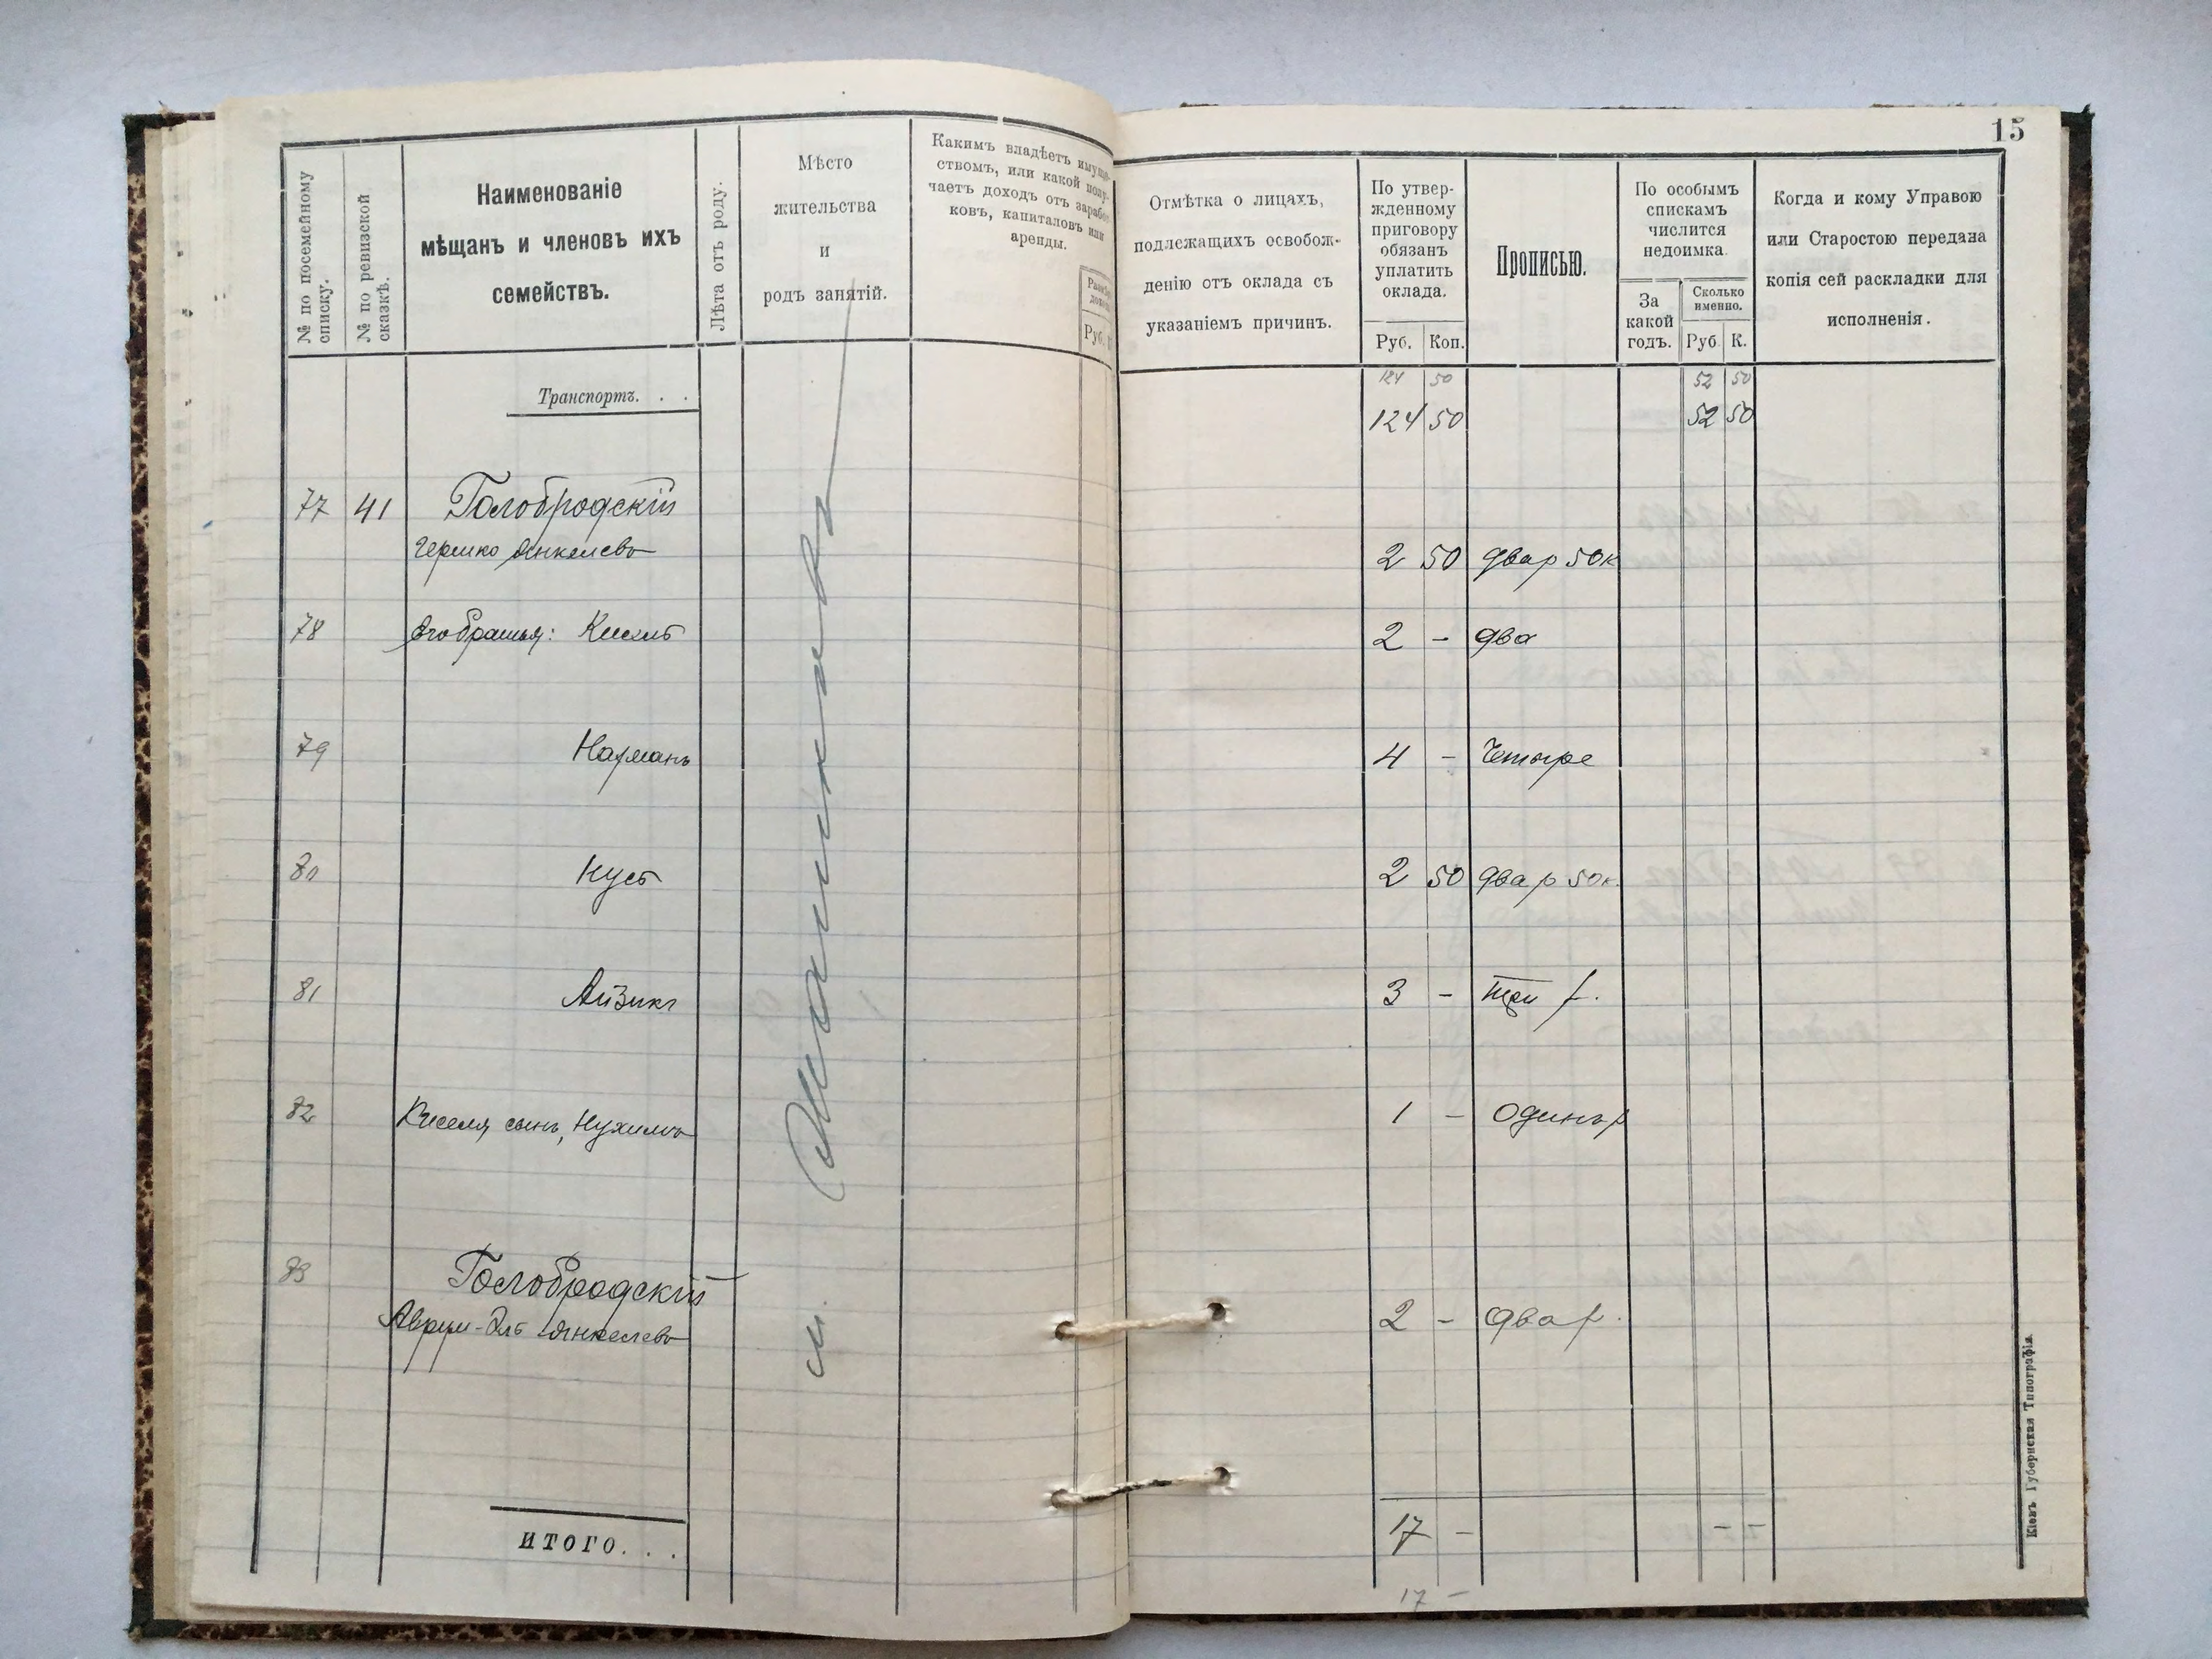 15
№ по посемейному
списку.
№ по ревизской
сказкѣ.
Наименованіе
мѣщанъ и членовъ ихъ
семействъ.
Лѣта отъ роду.
Мѣсто
жительства
и
родъ занятій.
Какимъ владѣетъ имуще-
ствомъ, или какой полу-
чаетъ доходъ отъ зарабо-
ковъ, капиталовъ или
аренды.
Руб.
Отмѣтка о лицахъ,
подлежащихъ освобож-
денію отъ оклада съ
указаніемъ причинъ.
По утвер-
жденному
приговору
обязанъ
уплатить
оклада.
Руб. Коп.
Прописью.
По особымъ
спискамъ
числится
недоимка.
За
какой
годъ.
Сколько
именно.
Руб. К.
Когда и кому Управою
или Старостою передана
копія сей раскладки для
исполненія.
124 50 52 50
Транспортъ. . .
124 50 52 50
77 41 Голобродскій
Гершко Янкелевъ 2 50 два р 50 к
78 Его братья: Кисель 2 - два
79 Нахманъ 4 - Четыре
80 Кусь 2 50 два р 50 к.
81 Айзикъ 3 - три р.
82 Киселя сынъ, Нухимъ 1 - Одинъ р
83 Голобродскій
Аврум-Эль Янкелевъ 2 - два р.
м.
ИТОГО. . .
17 - - -
17 -
Кіевъ Губернская Типографія.